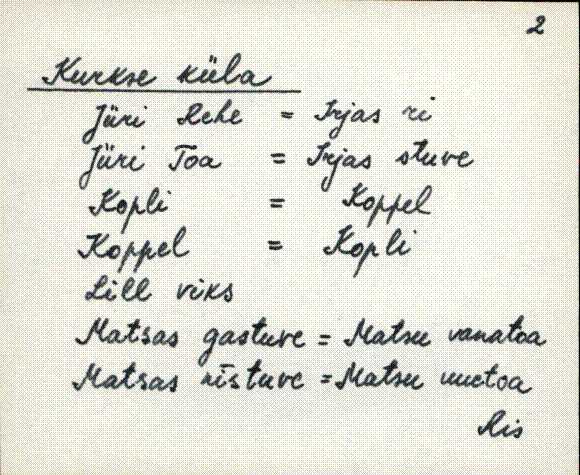 2
Kurkse küla
Jüri Rehe = Irjas ri
Jüri Toa = Irjas stuve
Kopli = Koppel
Koppel = Kopli
Lill viks
Matsas gastuve = Matsu vanatoa
Matsas nīstuve = Matsu uuetoa
Ris